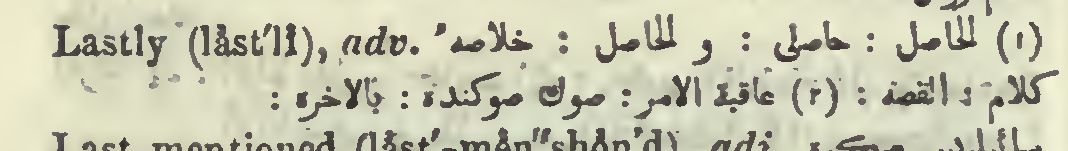 Lastly (låst'li̊), adv. (١) الحاصل : حاصلی : و الحاصل : خلاصهٔ
كلام : القصه : (٢) عاقبة الامر : صوك صوكنده : بالاخره :
Last-mentioned (låst'-mån"shån'd), adj.